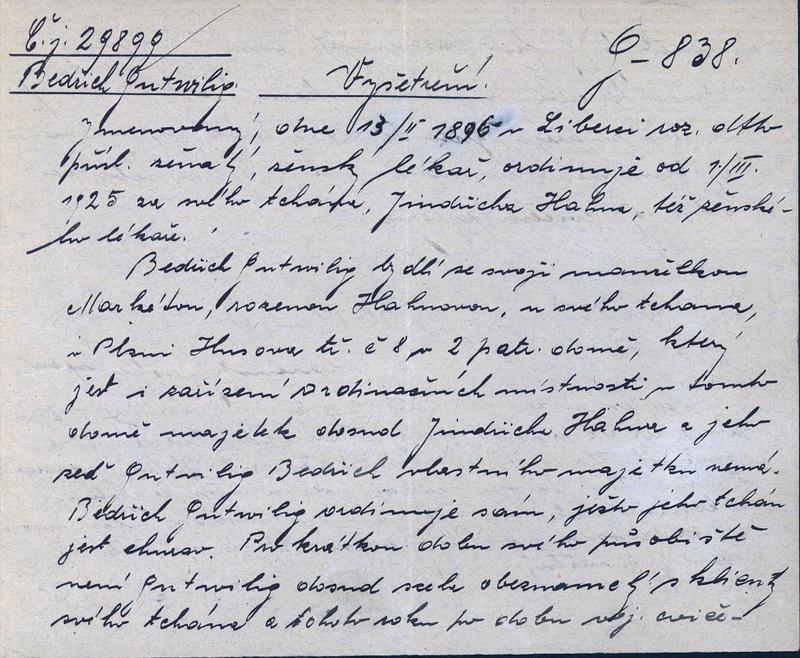 Č.j. 29899
G-838.
Bedřich Gutwilig. Vyšetření.
Jmenovaný, dne 13/II 1896 v Liberci roz. dtto
přísl. ženatý, ženský lékař, ordinuje od 1/III.
1925 za svého tchána, Jindřicha Hahna, též ženské-
ho lékaře.
Bedřich Gutwilig bydlí se svojí manželkou
Markétou, rozenou Hahnovou, u svého tchana,
v Plzni Husova tř. č 8 v 2 patr. domě, který
jest i zařízení ordinačních místností v tomto
domě majetek dosud Jindřicha Hahna a jeho
zeť Gutwilig Bedřich vlastního majetku nemá.
Bedřich Gutwilig ordinuje sám, ježto jeho tchán
jest churav. Pro krátkou dobu svého působiště
není Gutwilig dosud zcela obeznamelý s klienty
svého tchána a tohoto roku po dobu voj. cvič-